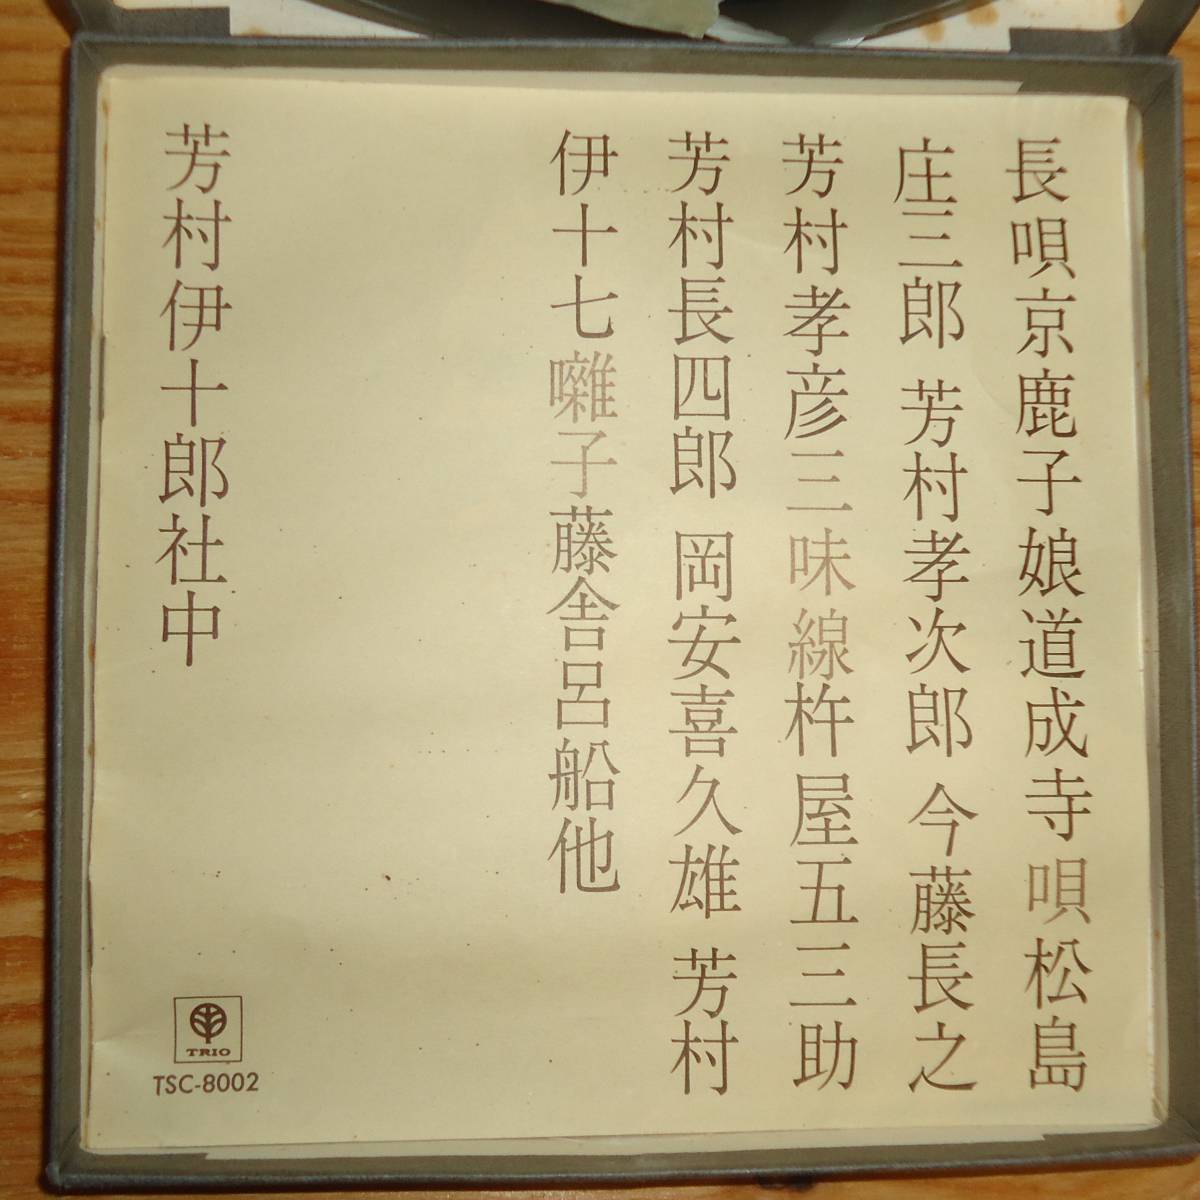 長唄京鹿子娘道成寺唄松島
庄三郎 芳村孝次郎 今藤長之
芳村孝彦三味線杵屋五三助
芳村長四郎 岡安喜久雄 芳村
伊十七囃子藤舎呂船他
芳村伊十郎社中
TRIO
TSC-8002